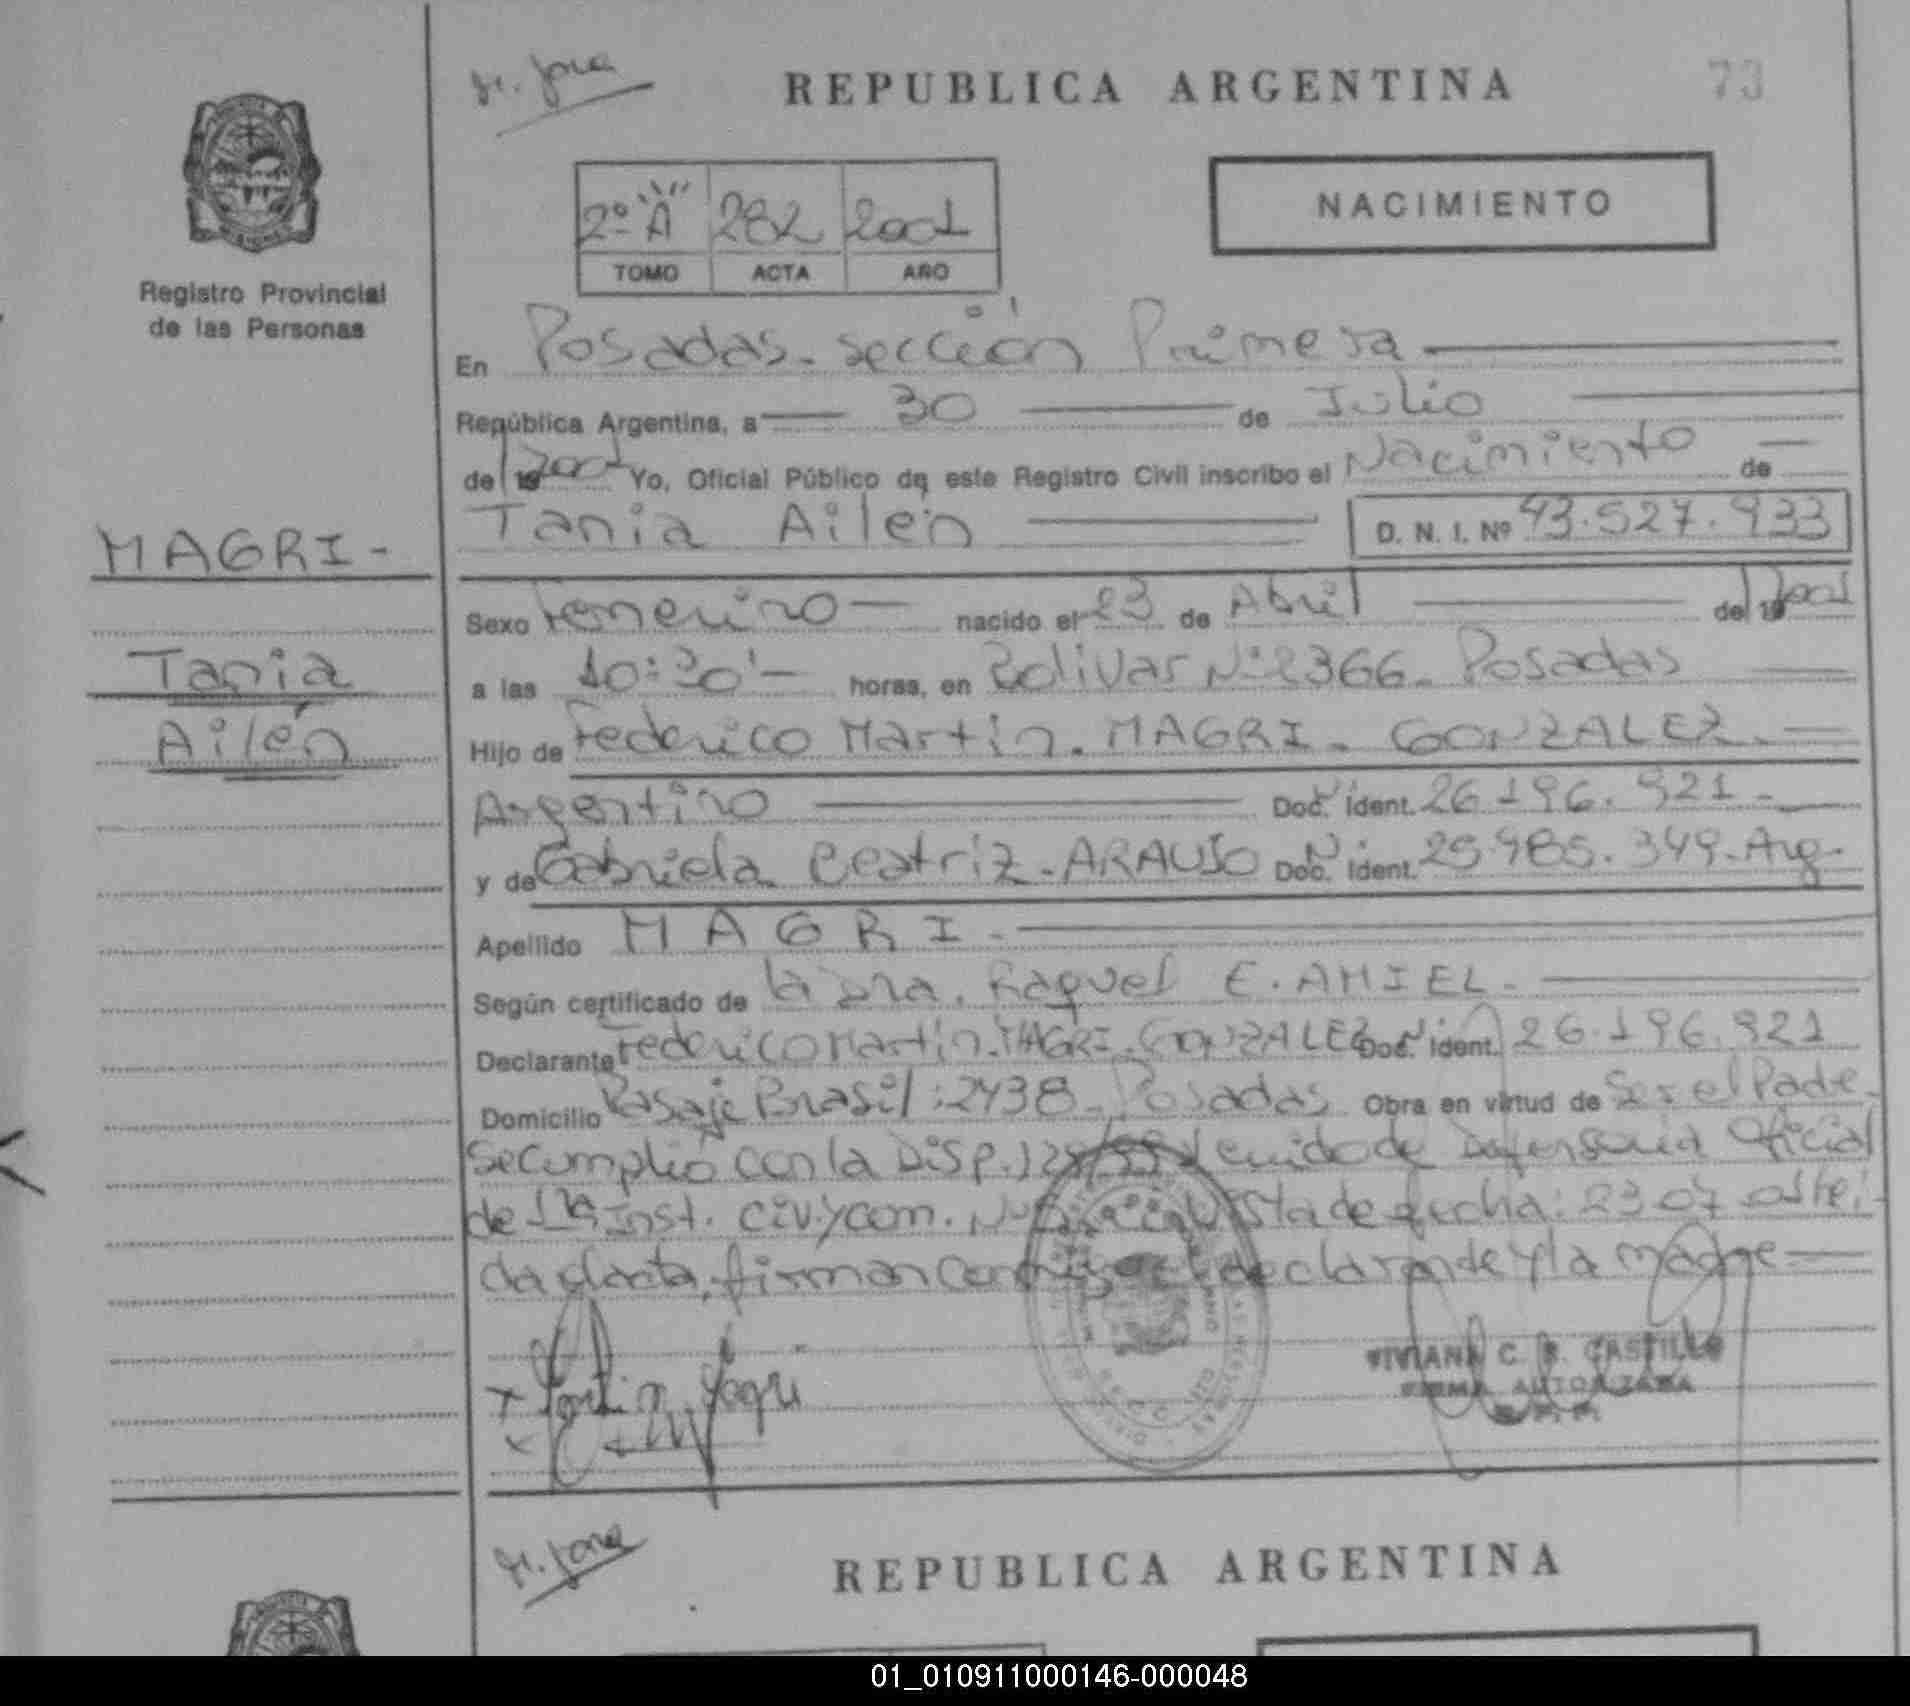 Sr. Jona
REPUBLICA ARGENTINA
73
2º "A" 282 2001
TOMO ACTA AÑO
NACIMIENTO
Registro Provincial
de las Personas
En Posadas - sección Primera
República Argentina, a 30 de Julio
de 19 2001 Yo, Oficial Público de este Registro Civil inscribo el Nacimiento de
Tania Ailén D. N. I. Nº 43.527.933
MAGRI -
Tania
Ailén
Sexo Femenino nacido el 23 de Abril de 19 2001
a las 10:30' horas, en Bolivar Nº 2366 - Posadas
Hijo de Federico Martín. MAGRI - GONZALEZ. -
Argentino Doc. Ident. 26.196.921 -
y de Gabriela Beatriz - ARAUJO Doc. Ident. 25.985.349 - Arg.
Apellido MAGRI -
Según certificado de la Dra. Raquel E. AMIEL -
Declarante Federico Martín. MAGRI - GONZALEZ Doc. Ident. 26.196.921
Domicilio Pasaje Brasil: 2438 - Posadas Obra en virtud de Ser el Padre -
Se cumplió con la Disp. Defensoría Oficial
de 1ª Inst. Civ. y Com. Nº vista de fecha: 23 07 01 leí-
da el acta, firman conmigo el declarante y la madre
VIVIANA C. CASTILLO
FIRMA AUTORIZADA
Sr. Jona
REPUBLICA ARGENTINA
01_010911000146-000048